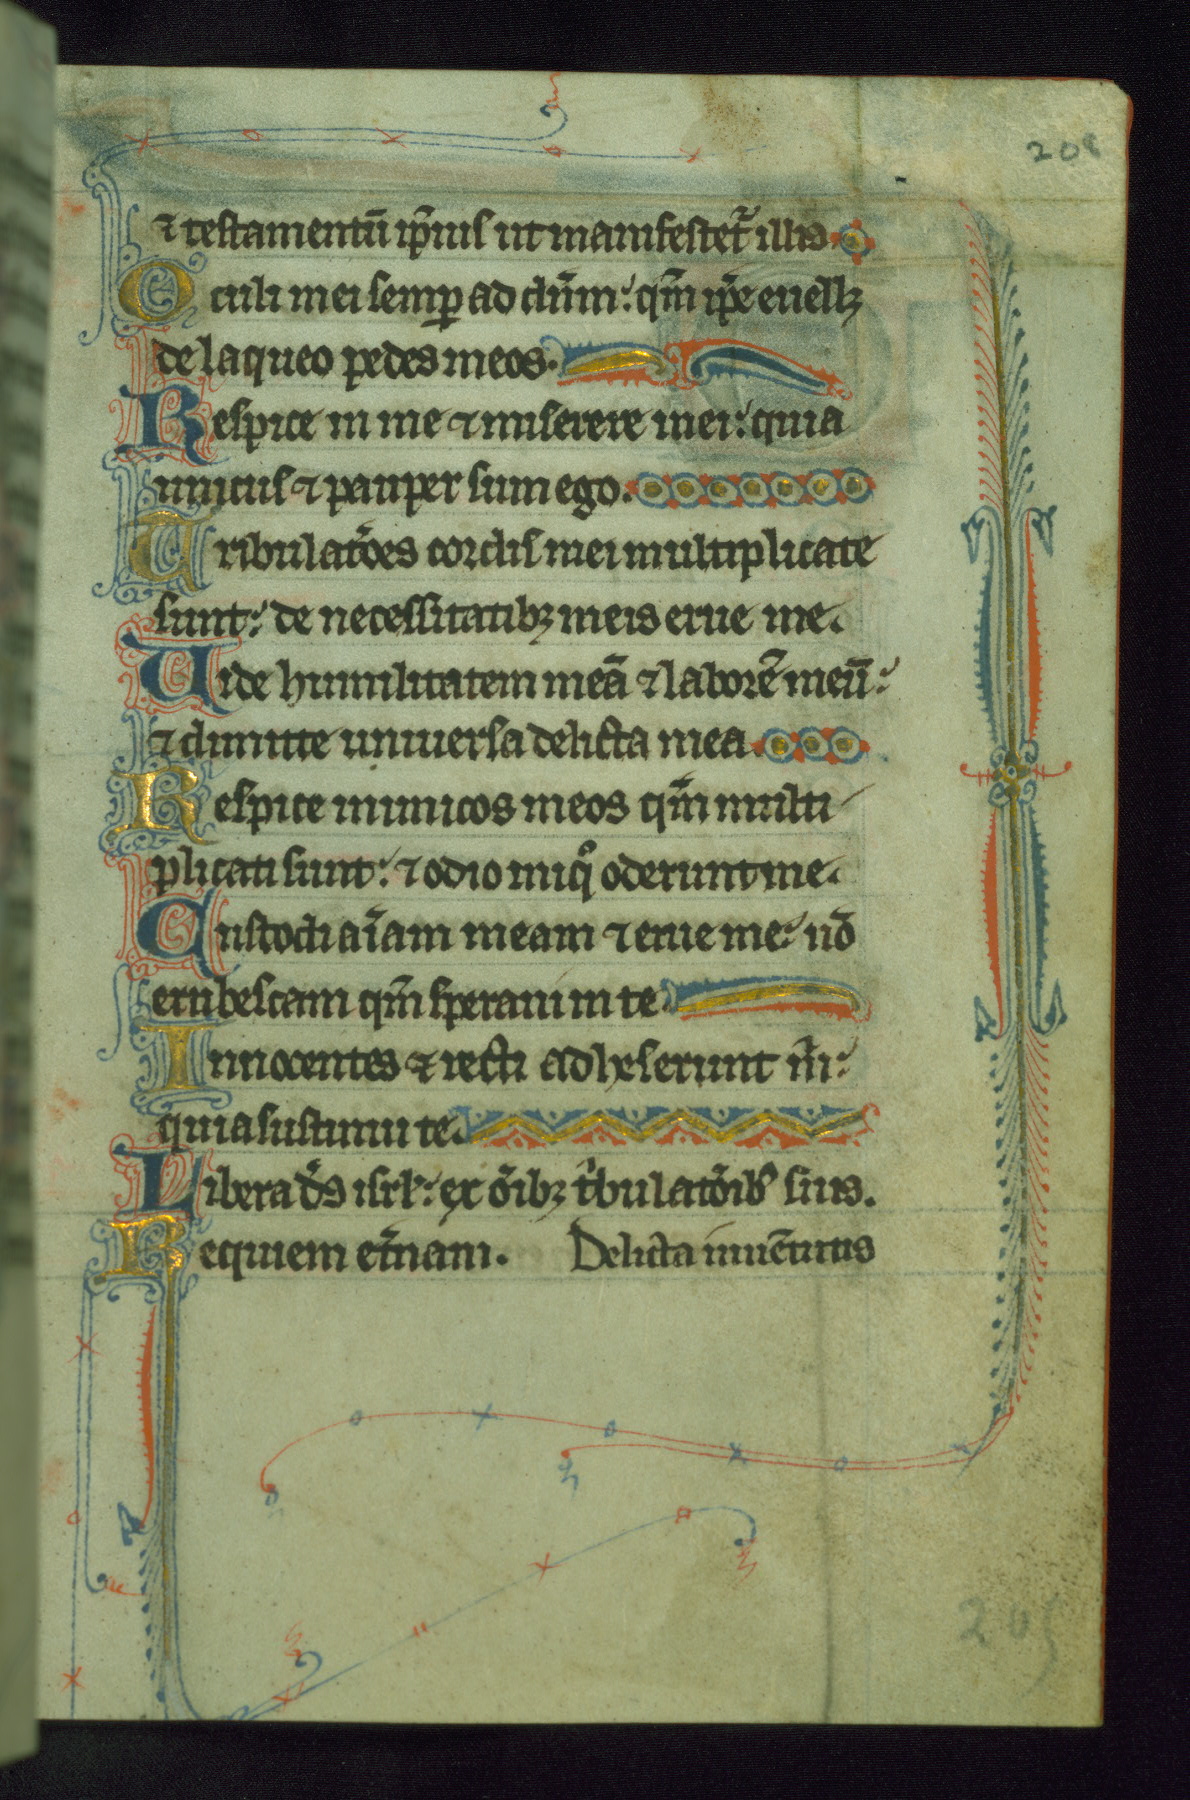 208
⁊ testamentū ip̄iuſ ut manifestet᷑ illis.
Oculi mei semꝑ ad dn̄m: qm̄ ip̄e euellꝫ
de laqueo pedes meos.
Reſpice in me ⁊ miſerere mei: quia
unicuſ ⁊ pauper ſum ego.
Tribulatōes cordiſ mei multiplicate
ſunt: de neceſſitatibꝫ meis erue me.
Uide humilitatem meā ⁊ laborē meū:
⁊ dimitte uniuerſa delicta mea.
Reſpice inimicos meos qm̄ multi
plicati ſunt: ⁊ odio iniqͦ oderunt me.
Cuſtodi aīam meam ⁊ erue me: nō
erubeſcam qm̄ ſperaui in te
Innocentes ⁊ recti adheſerunt m̄i:
quia ſuſtinui te.
Libera d̄s iſrl̓: ex ōibꝫ t̓bulatōib᷒ ſuis.
Requiem et̄nam. Delicta iuuētutis
205